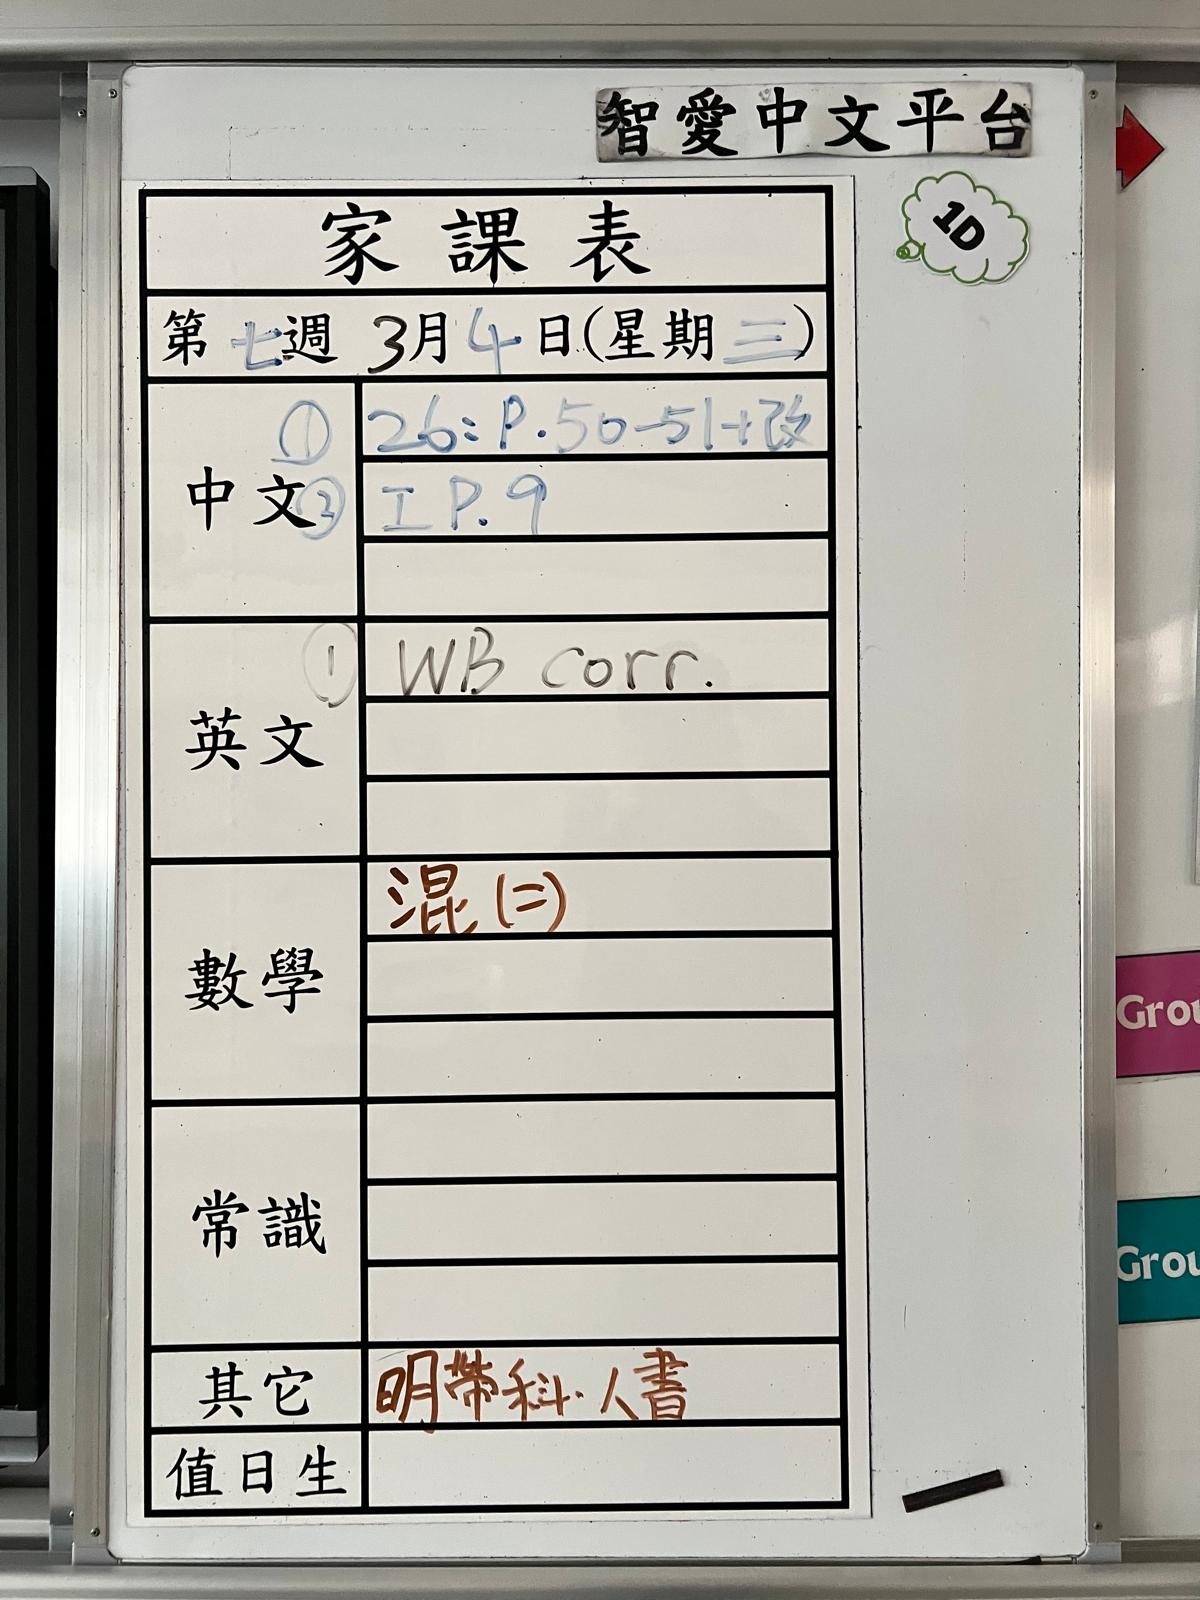 智愛中文平台
1D
家課表
第七週 3月4日(星期三)
中文
① 26: P.50-51+改
② 工 P.9
英文
① WB corr.
數學
混(二)
常識
其它
明帶科.人書
值日生
Grou
Grou